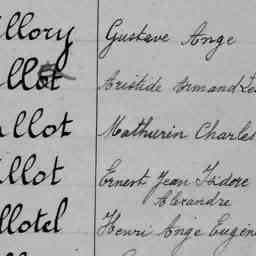 llory Gustave Ange
llot Aristide Armand
llot Mathurin Charles
llot Ernest Jean Isidore
Alexandre
llotel Henri Ange Eugèn